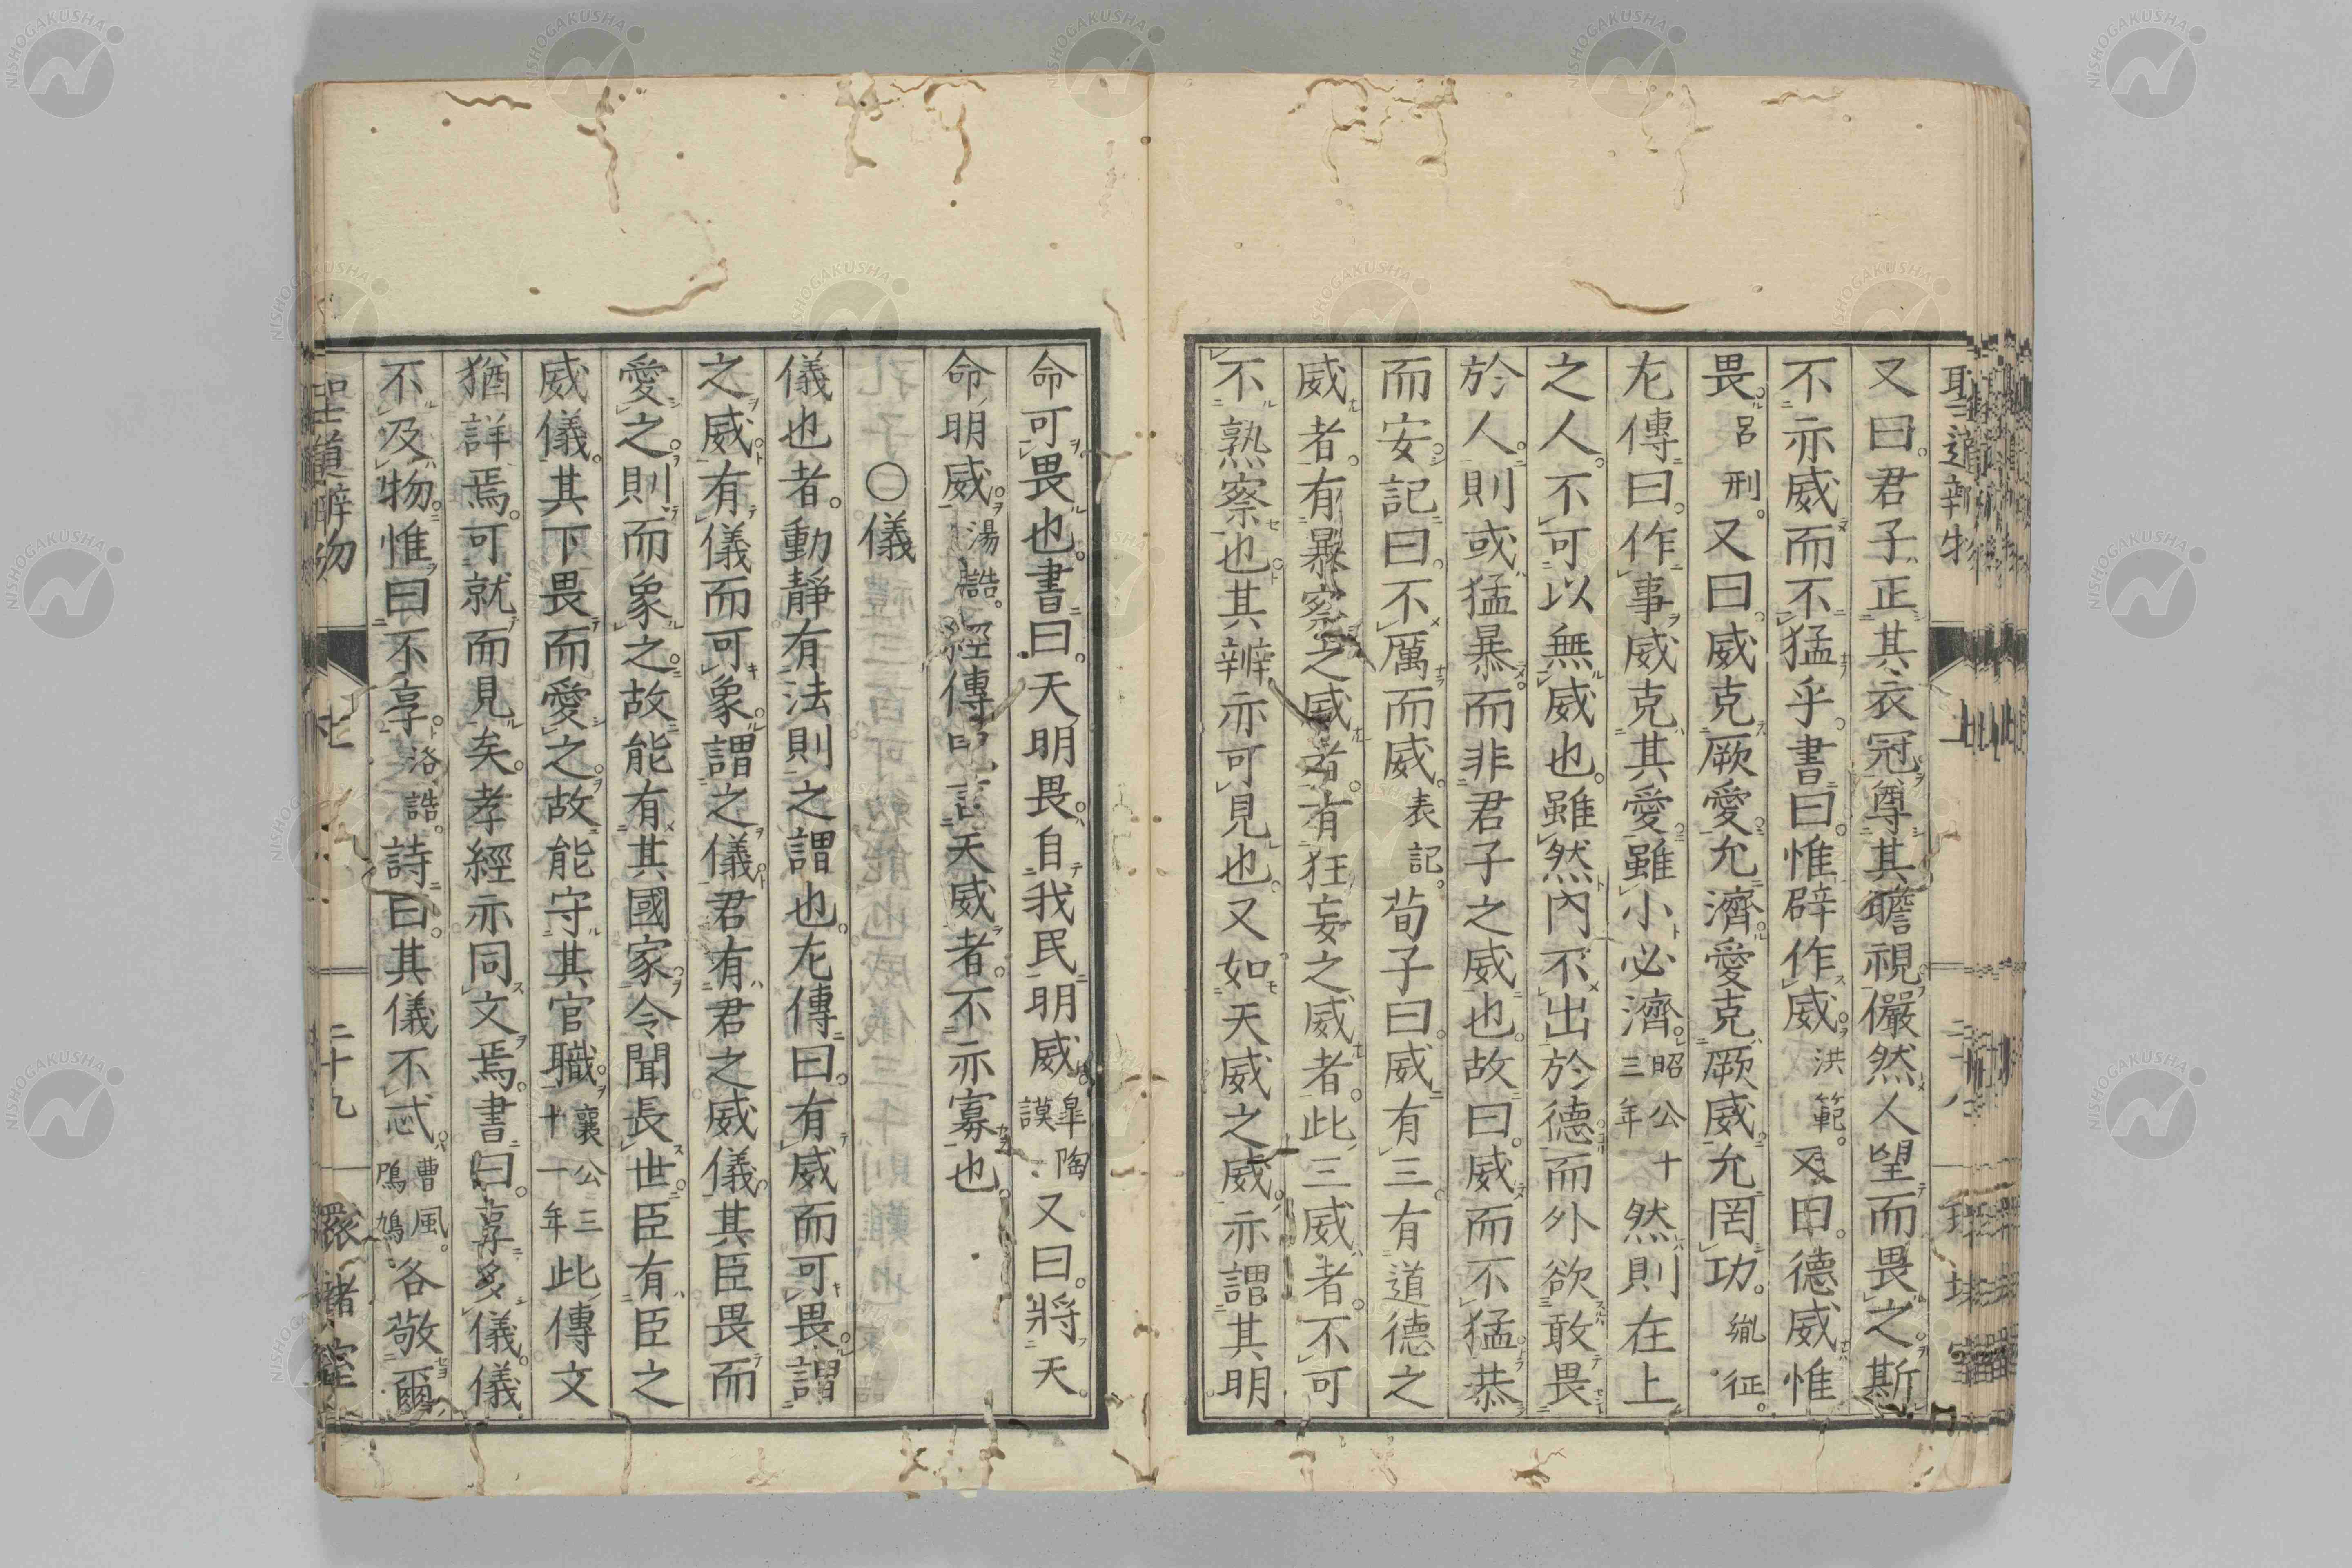 又曰。君子正其衣冠。尊其瞻視。儼然人望而畏之。斯
不亦威而不猛乎。書曰。惟辟作威。洪範。又曰。德威惟
畏。呂刑。又曰。威克厥愛。允濟。愛克厥威。允罔功。胤征。
左傳曰。作事威克其愛。雖小必濟。昭公二十三年然則在上
之人。不可以無威也。雖然內不出於德。而外欲敢畏
於人。則或猛暴。而非君子之威也。故曰。威而不猛。恭
而安。記曰。不厲而威。表記。荀子曰。威有三。有道德之
威者。有暴察之威者。有狂妄之威者。此三威者。不可
不熟察也。其辨亦可見也。又如天威之威。亦謂其明
命可畏也。書曰。天明畏。自我民明威。皐陶謨。又曰。將天
命明威。湯誥。經傳言天威者。不亦寡也。
〇儀
儀也者。動靜有法則之謂也。左傳曰。有威而可畏。謂
之威。有儀而可象。謂之儀。君有君之威儀。其臣畏而
愛之。則而象之。故能有其國家。令聞長世。臣有臣之
威儀。其下畏而愛之。故能守其官職。襄公三十一年此傳文
猶詳焉。可就而見矣。孝經亦同文焉。書曰。享多儀。儀
不及物。惟曰不享。洛誥。詩曰。其儀不忒。曹風。鳲鳩各敬爾
聖道辨物
上
二十九